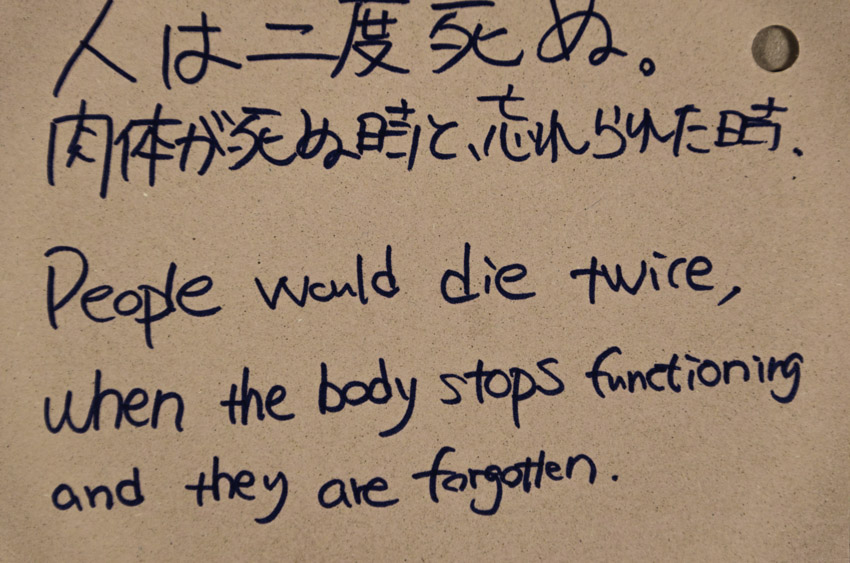 人は二度死ぬ。
肉体が死ぬ時と、忘れられた時.
People would die twice,
when the body stops functioning
and they are forgotten.